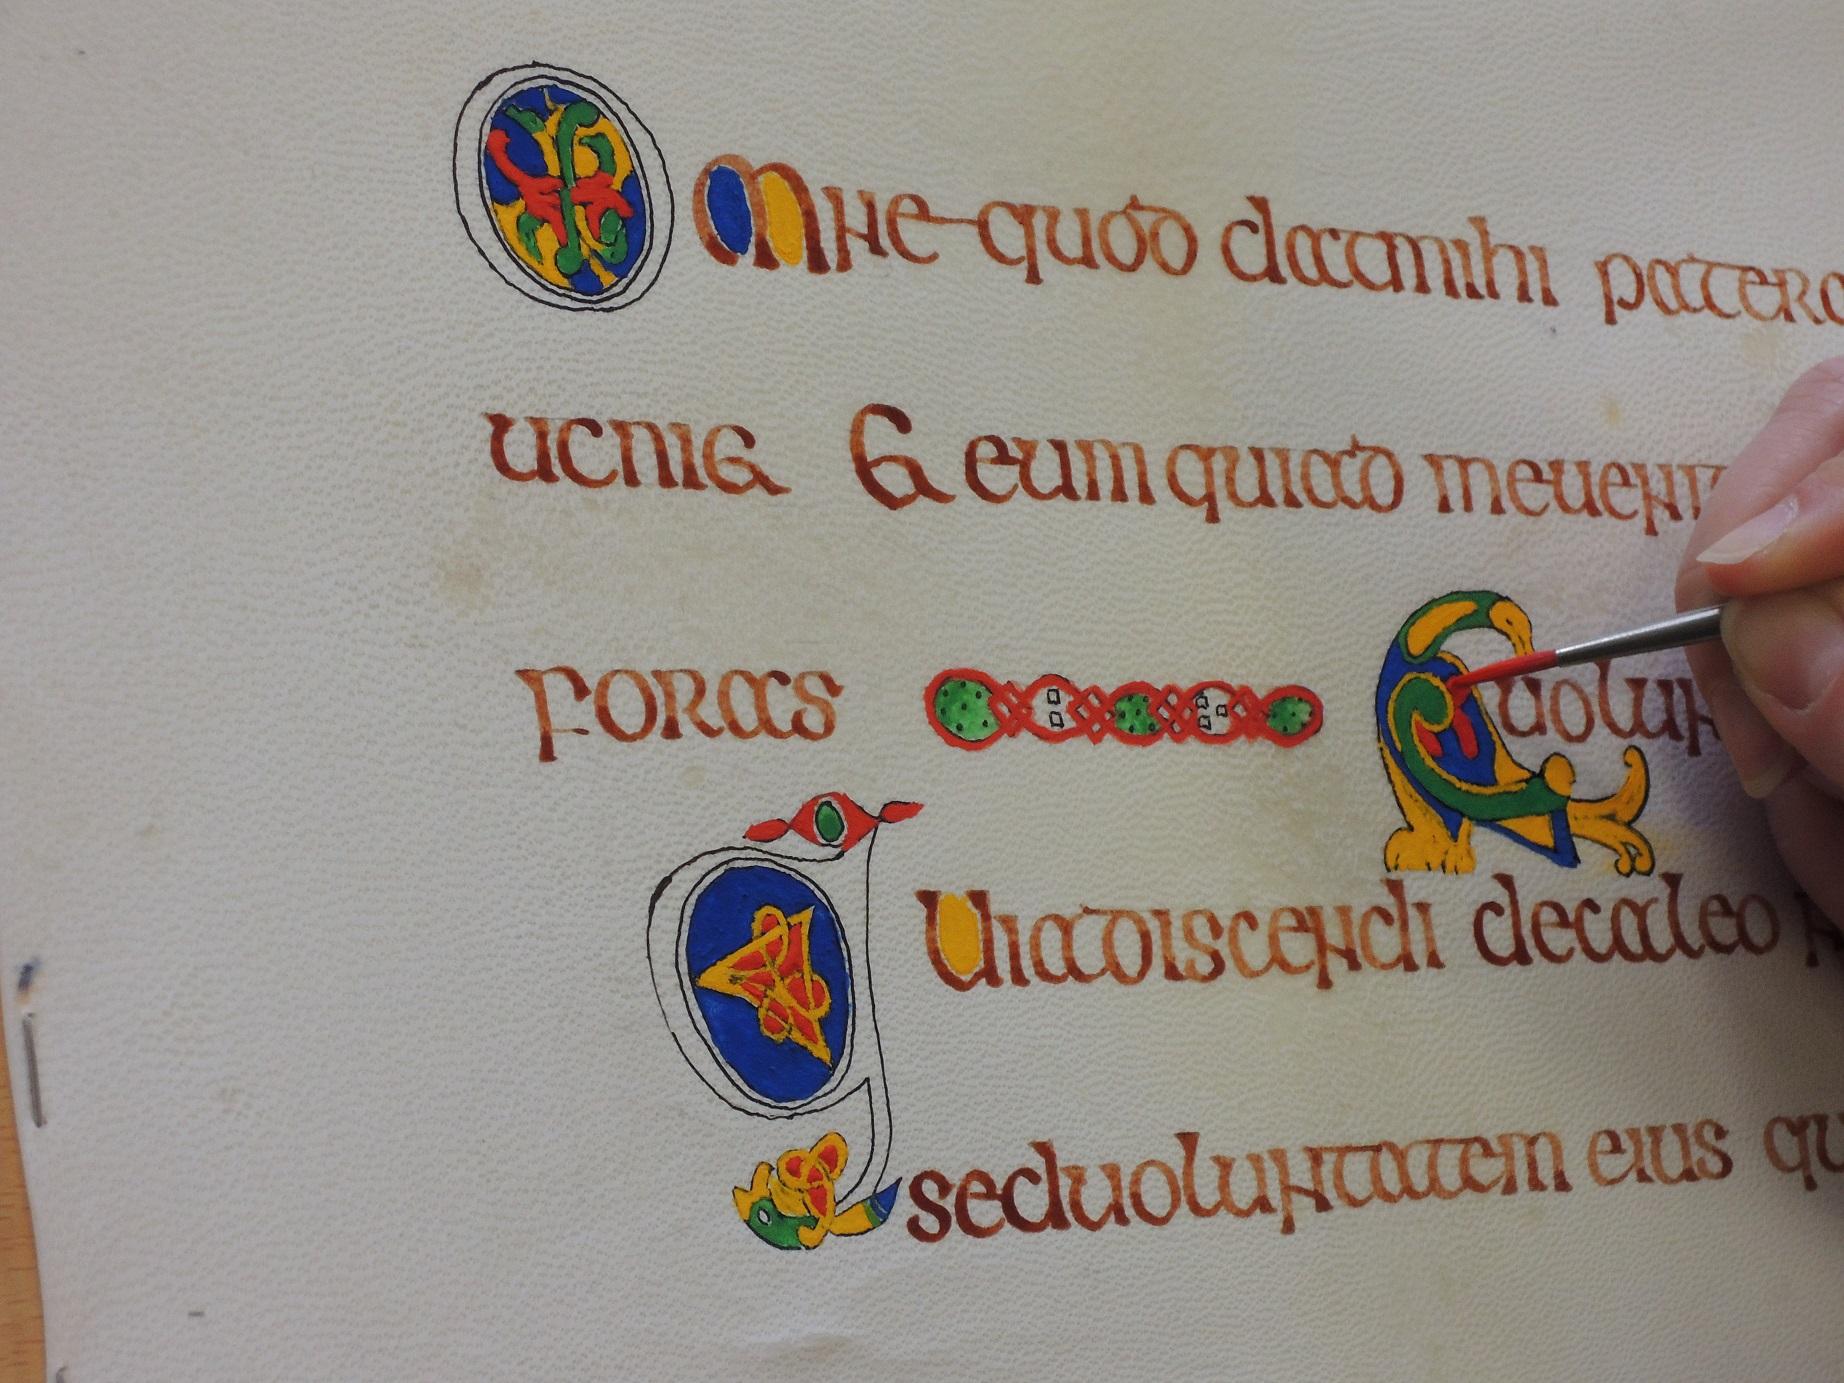 Omne quod dat mihi pater a
ucniet et eum qui ad me uenit
foras
Quia discendi de caleo
sed uoluntatem eius qu